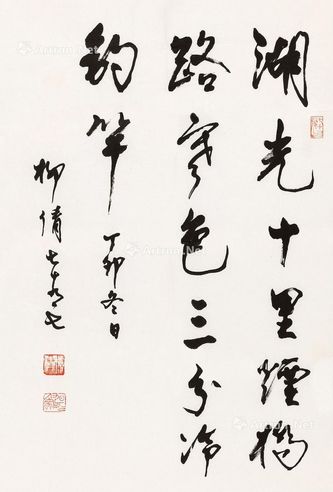 湖光十里煙橋
路寒色三分冷
釣竿 丁卯冬日
柳倩七十有七